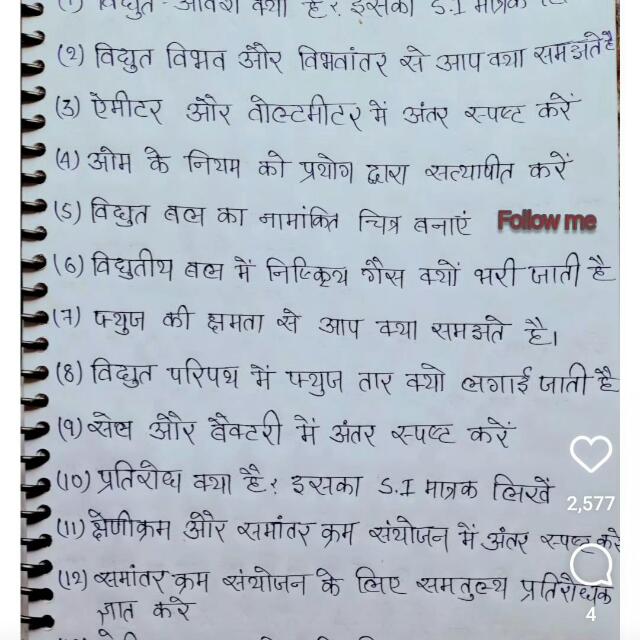 (1) विद्युत - आवेश क्या है? इसका S.I मात्रक
(2) विद्युत विभव और विभवांतर से आप क्या समझते है
(3) ऐमीटर और वोल्टमीटर में अंतर स्पष्ट करें
(4) ओम के नियम को प्रयोग द्वारा सत्यापीत करें
(5) विद्युत बल्ब का नामांकित चित्र बनाएं Follow me
(6) विद्युतीय बल्ब में निष्क्रिय गैस क्यों भरी जाती है
(7) फ्युज की क्षमता से आप क्या समझते है।
(8) विद्युत परिपथ में फ्युज तार क्यो लगाई जाती है
(9) सेल और बैक्टरी में अंतर स्पष्ट करें
(10) प्रतिरोध क्या है? इसका S.I मात्रक लिखें
2,577
(11) श्रेणीक्रम और समांतर क्रम संयोजन में अंतर स्पष्ट करे
(12) समांतर क्रम संयोजन के लिए समतुल्य प्रतिरोधक
ज्ञात करे
4